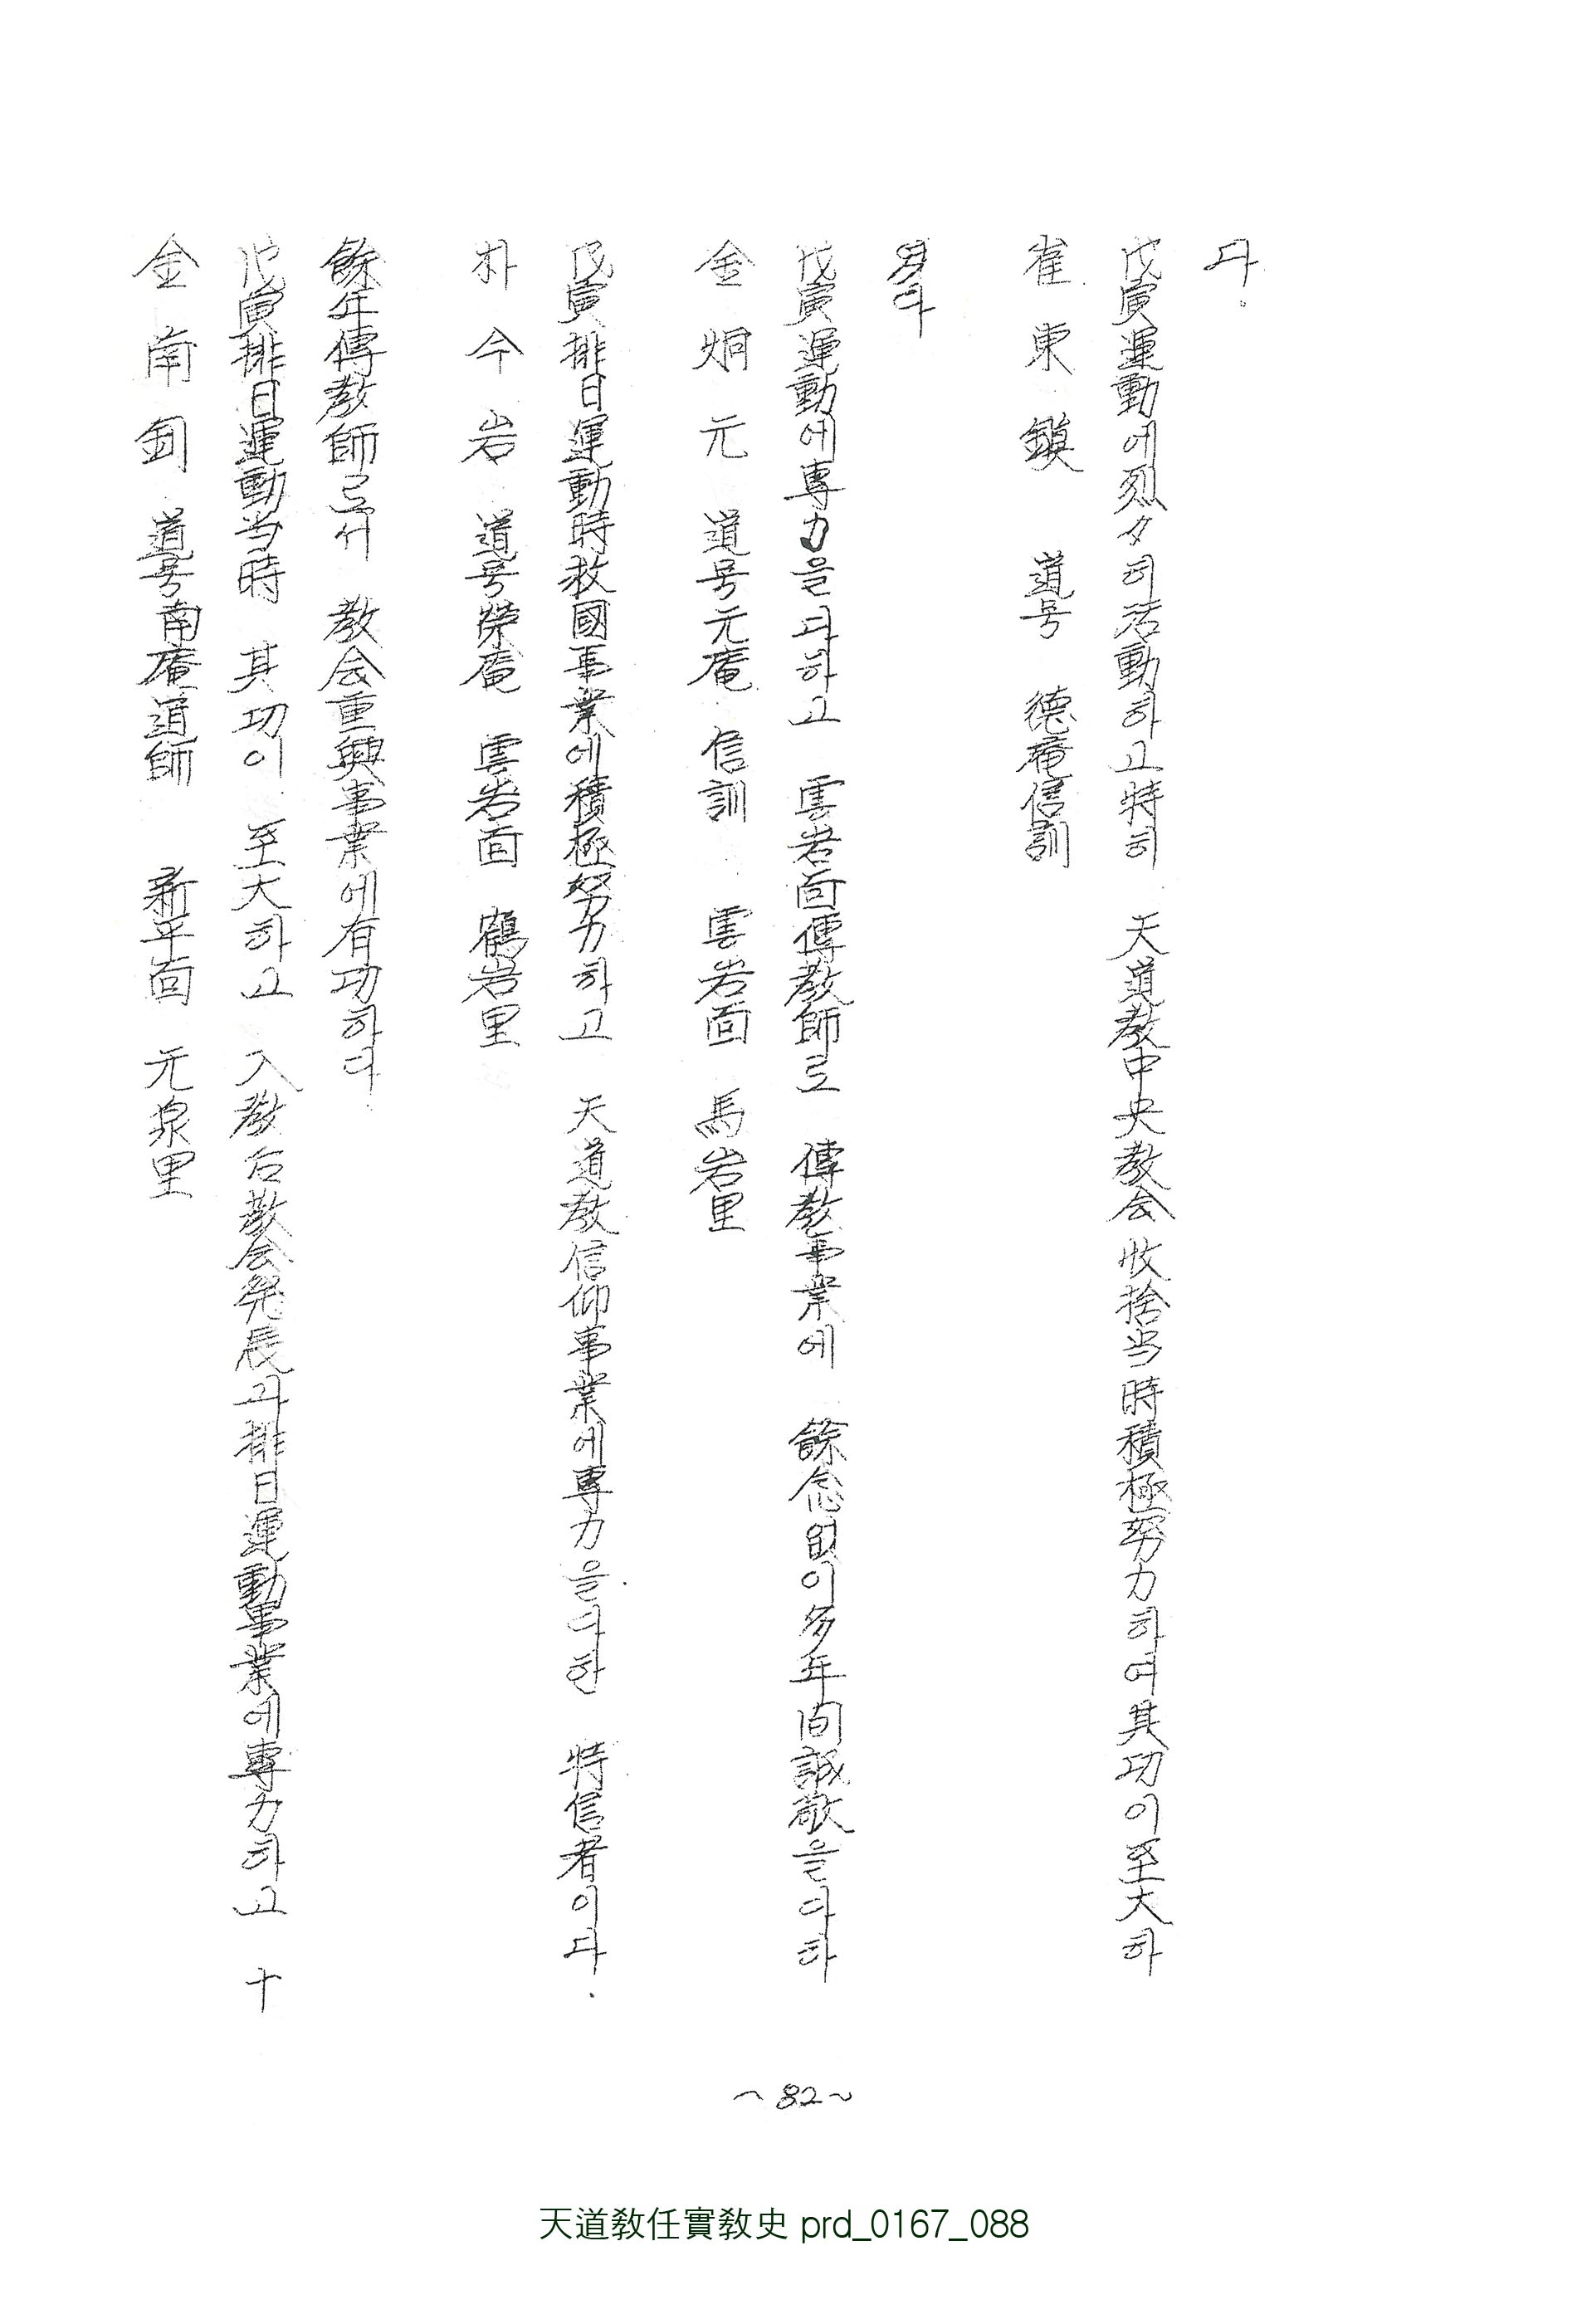 다.
戊寅運動에烈々히活動하고特히 天道敎中央敎会 收拾当時積極努力하여其功이至大하
崔東鎭 道号 德庵信訓
였다
戊寅運動에專力을다하고 雲岩面傳敎師로 傳敎事業에 餘念없이多年间誠敬을다하
金炯元 道号元庵 信訓 雲岩面 馬岩里
戊寅排日運動時救國事業에積極努力하고 天道敎信仰事業에專力을다한 特信者이다.
朴今岩 道号榮庵 雲岩面 鶴岩里
餘年傳敎師로서 敎会重興事業에有功하다
戊寅排日運動当時 其功이 至大하고 入敎后敎会発展과排日運動事業에專力하고 十
金南釗 道号南庵道師 新平面 元泉里
~82~
天道敎任實敎史 prd_0167_088